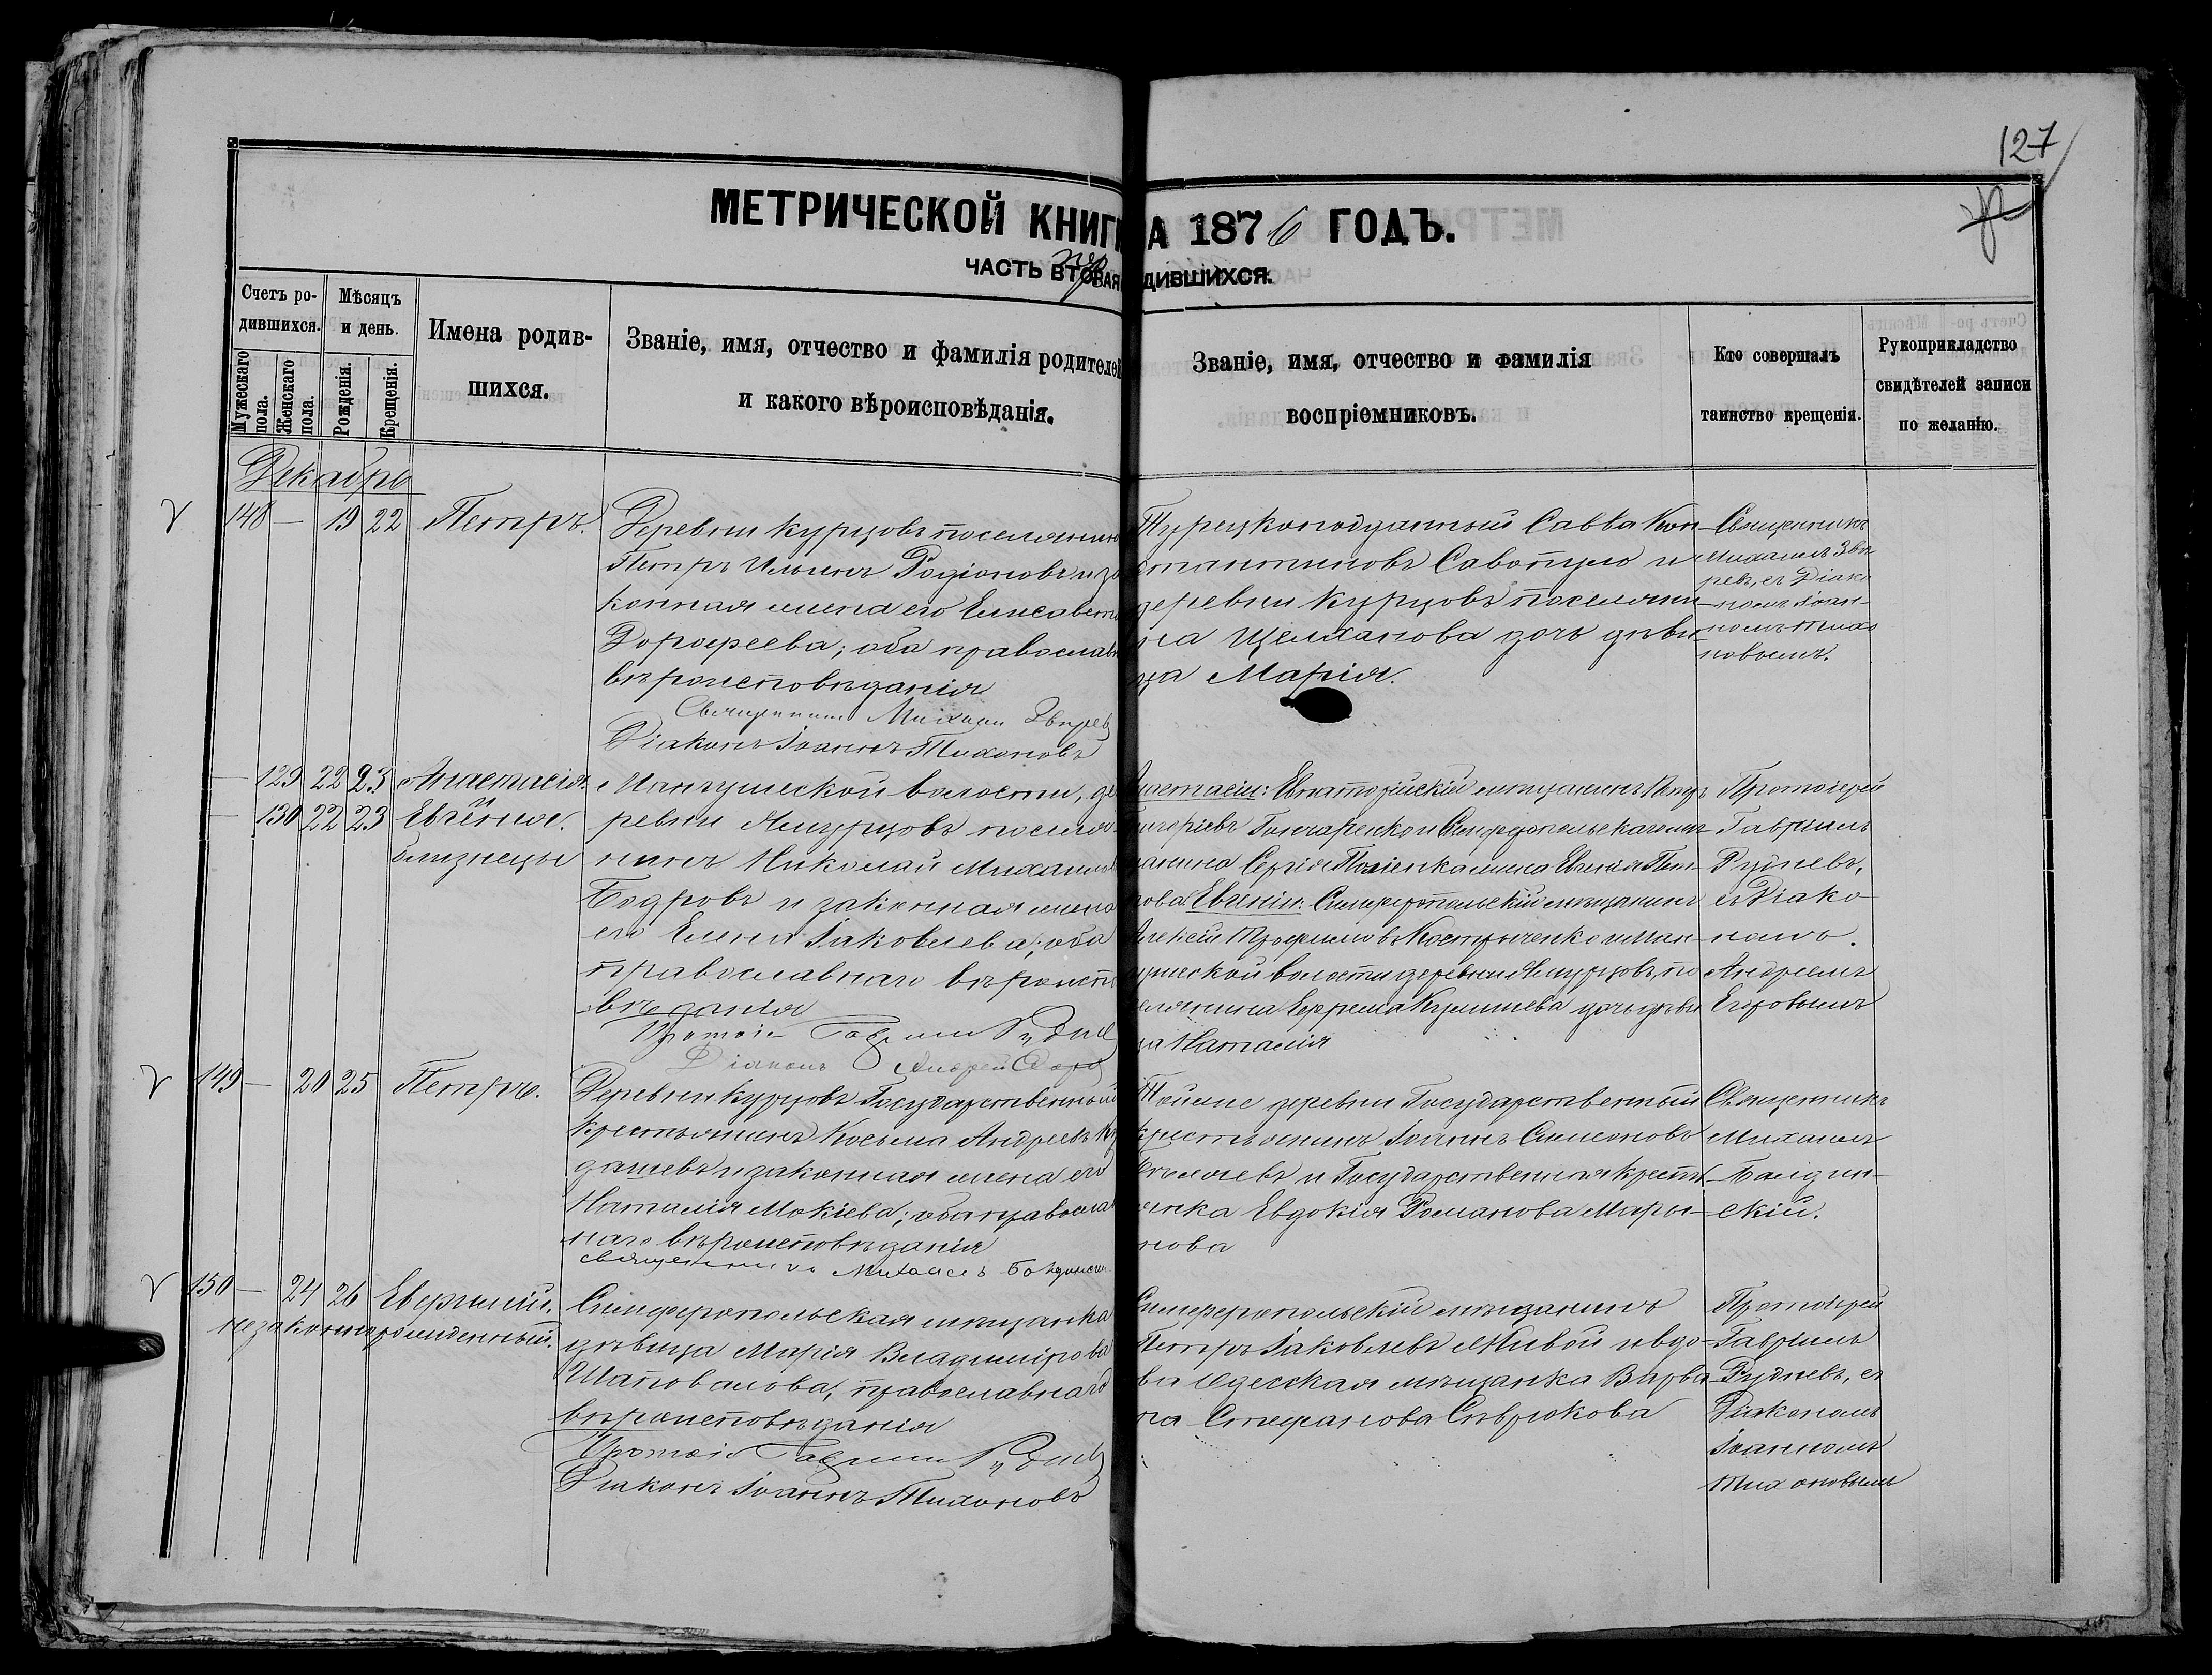 127
МЕТРИЧЕСКОЙ КНИГ
А 1876 ГОДЪ.
ЧАСТЬ ВТОРАЯ
ДИВШИХСЯ.
Счетъ ро-
дившихся.
Мужескаго
пола.
Женскаго
пола.
Мѣсяцъ
и день.
Рожденія.
Крещенія.
Имена родив-
шихся.
Званіе, имя, отчество и фамилія родителей
и какого вѣроисповѣданія.
Званіе, имя, отчество и фамилія
воспріемниковъ.
Кто совершалъ
таинство крещенія.
Рукоприкладство
свидѣтелей записи
по желанію.
Декабрь
148 — 19 22 Петръ.
Деревни Курцовъ поселянинъ
Петръ Ильинъ Родіоновъ и за
конная жена его Елисавет
Дорофеева; оба православ
вѣроисповѣданія
Священникъ Михаил Звѣрев
Діаконъ Іоаннъ Тихоновъ
Турецкоподданный Савва Кон-
стантиновъ Савопуло и
деревни Курцовъ поселяни-
на Щелканова дочь дѣви-
ца Марія.
Священникъ
Михаилъ Звѣ-
ревъ, съ Діако-
номъ Іоан-
номъ Тихо
новымъ.
— 129 22 23 Анастасія.
— 130 22 23 Евгенія.
близнецы
Мангушской волости, де
ревни поселя-
нинъ Николай Михаил
Бодровъ и законная жена
его Елена Іаковлева; оба
православнаго вѣроисп
вѣданія
Протоіе Гавриил Рудне
Діаконъ Андрей
Анастасіи: Евпаторійскій мѣщанинъ Петръ
Гончаренко и Симферопольскаго мѣ-
щанина Сергія жена Евгенія Пет-
рова. Евгеніи: Симферопольскій мѣщанинъ
Алексій Трофимовъ и Ман-
гушской волости деревни по-
селянина Ефрема дочь дѣви
ца Наталія
Протоіерей
Гавріилъ
Рудневъ,
съ Діако-
номъ
Андреемъ
Егоровымъ
149 — 20 25 Петръ.
Деревни Курцовъ Государственный
крестьянинъ Косьма Андреевъ
дашевъ и законная жена его
Наталія Мокіева; оба правосла
наго вѣроисповѣданія
священникъ Михаилъ
Тойже деревни Государственный
крестьянинъ Іоаннъ Симоновъ
и Государственная кресть-
янка Евдокія Романова Марь-
нова
Священникъ
Михаилъ
скій.
150 — 24 26 Евгеній.
незаконнорожденный.
Симферопольская мѣщанка
дѣвица Марія Владимірова
Шаповалова, православнаго
вѣроисповѣданія
Протоіе Гавриил Руднев
Діаконъ Іоаннъ Тихоновъ
Симферопольскій мѣщанинъ
Петръ Іаковлевъ Живой и вдо-
ва Одесская мѣщанка Варва-
ра Стефанова Сѣврюкова
Протоіерей
Гавріилъ
Рудневъ, съ
Діакономъ
Іоанномъ
Тихоновымъ